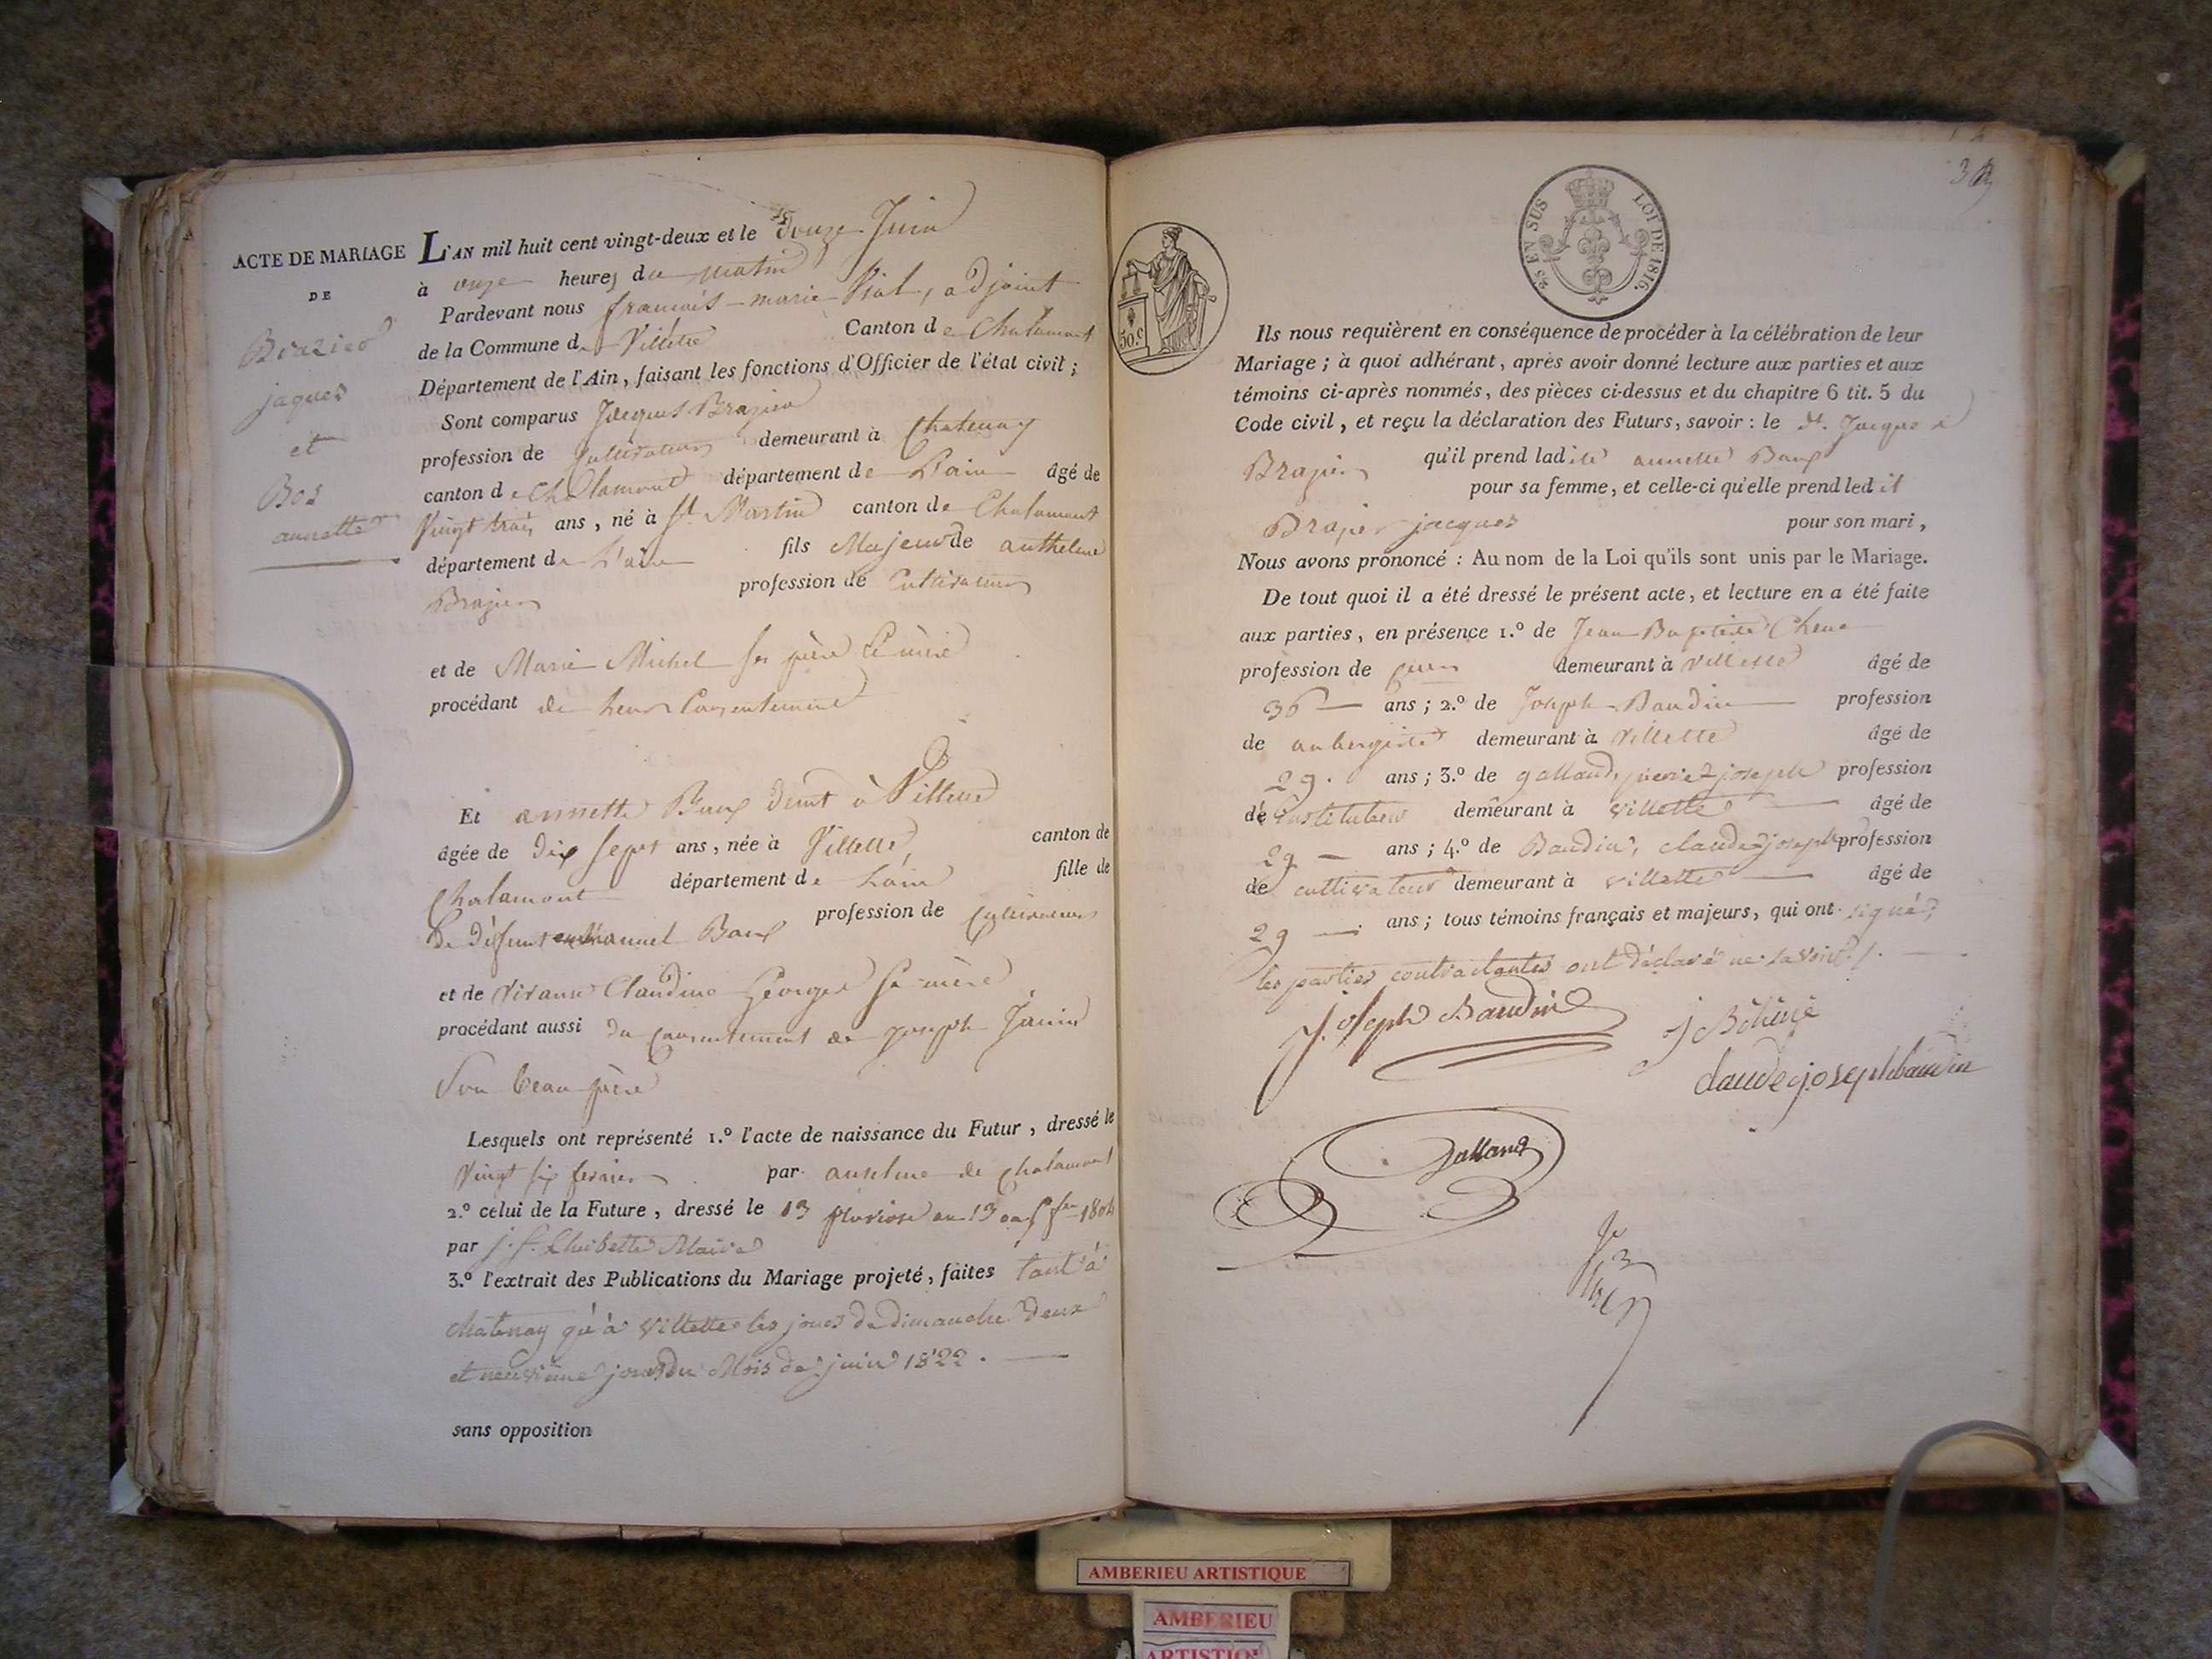 ACTE DE MARIAGE
DE
Brazier
jaques
et
Bos
annette
L'AN mil huit cent vingt-deux et le douze Juin
à onze heures du matin
Pardevant nous francois-marie Vial, adjoint
de la Commune de Villette Canton de Chalamont
Département de l'Ain, faisant les fonctions d'Officier de l'état civil;
Sont comparus Jacques Brazier
profession de Cultivateur demeurant à Chatenay
canton de Chalamont département de L'ain âgé de
Vingt trois ans, né à St Martin canton de Chalamont
département de L'ain fils Majeur de anthelme
Brazier profession de Cultivateur
et de Marie Michel ses père et mère
procédant de leur Consentement
Et annette Baux demt à Villette
âgée de dix sept ans, née à Villette canton de
Chalamont département de Lain fille de
De défunt emanuel Baux profession de Cultivateur
et de vivante Claudine George sa mère
procédant aussi du Consentement de Joseph Janin
Son beau père
Lesquels ont représenté 1.º l'acte de naissance du Futur, dressé le
Vingt six fevrier par anselme de Chalamont
2.º celui de la Future, dressé le 13 pluviose an 13 1804
par j. f. Maire
3.º l'extrait des Publications du Mariage projeté, faites tant à
châtenay qu'à villette les jours de dimanche deux
et neuvième jours du Mois de juin 1822.
sans opposition
50 c
25 EN SUS
LOI DE 1816.
Ils nous requièrent en conséquence de procéder à la célébration de leur
Mariage; à quoi adhérant, après avoir donné lecture aux parties et aux
témoins ci-après nommés, des pièces ci-dessus et du chapitre 6 tit. 5 du
Code civil, et reçu la déclaration des Futurs, savoir: le dt. Jacques
Brazier qu'il prend ladite annette Baux
pour sa femme, et celle-ci qu'elle prend ledit
Brazier jacques pour son mari,
Nous avons prononcé: Au nom de la Loi qu'ils sont unis par le Mariage.
De tout quoi il a été dressé le présent acte, et lecture en a été faite
aux parties, en présence 1.º de Jean Baptiste Chene
profession de demeurant à villette âgé de
36 ans; 2.º de Joseph Baudin profession
de aubergiste demeurant à Villette âgé de
29. ans; 3.º de galland, pierre joseph profession
de instituteur demeurant à villette âgé de
29 ans; 4.º de Baudin, claude joseph profession
de cultivateur demeurant à villette âgé de
29 ans; tous témoins français et majeurs, qui ont signé,
les parties contractantes ont déclaré ne savoir.
Joseph Baudin
claude joseph baudin
Galland
AMBERIEU ARTISTIQUE
AMBERIEU
ARTISTIQUE